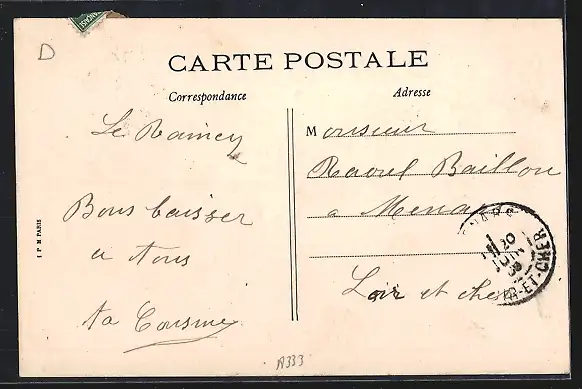 D
CARTE POSTALE
Correspondance
Adresse
Le Raincy
Bons baiser
a tous
ta Cousine
Monsieur
Raoul Baillon
a Menars
Loir et cher
20
JUIN
ET-CHER
I P M PARIS
A333